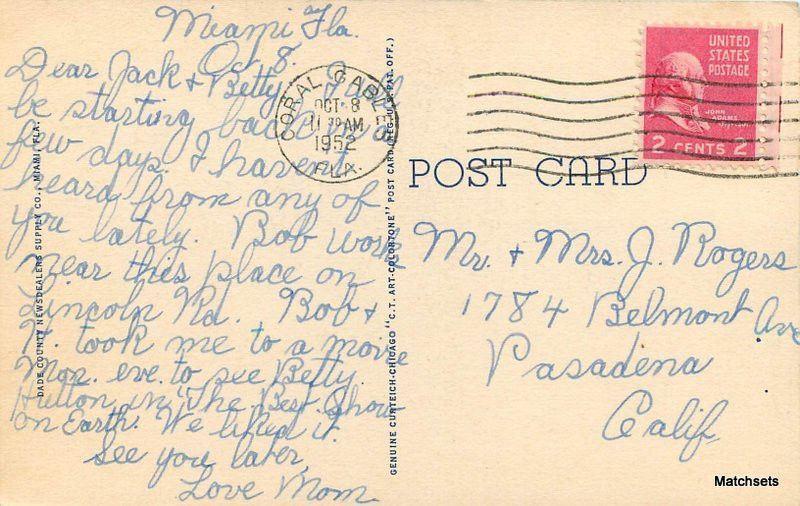 Miami Fla.
Oct 8.
Dear Jack + Betty I will
be starting back in a
few days. I havent
heard from any of
you lately. Bob works
near this place on
Lincoln Rd. Bob +
N. took me to a movie
Mon. eve. to see Betty
Hutton in "The Best Show
on Earth. We liked it.
See you later,
Love Mom
DADE COUNTY NEWSDEALERS SUPPLY CO., MIAMI, FLA.
GENUINE CURTEICH-CHICAGO "C.T. ART-COLORTONE" POST CARD (REG. U.S. PAT. OFF.)
CORAL GABLES
OCT 8
11 30 AM
1952
FLA.
UNITED
STATES
POSTAGE
JOHN
ADAMS
2 CENTS 2
POST CARD
Mr. + Mrs. J. Rogers
1784 Belmont Ave
Pasadena
Calif
Matchsets